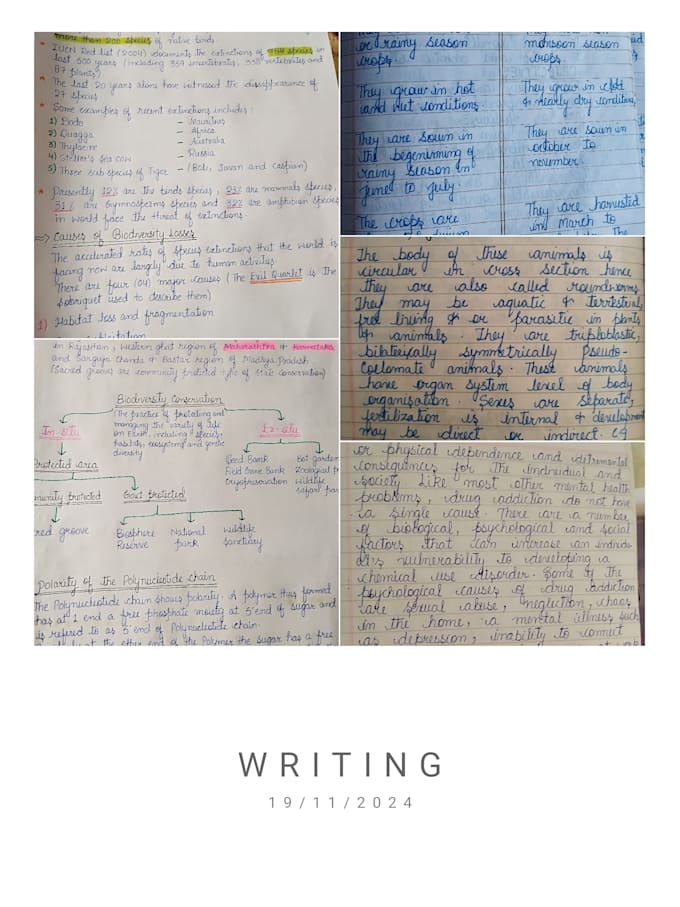 more than 200 species of native birds.
* IUCN Red list (2004) documents the extinctions of 784 species in
last 500 years (including 359 invertebrates, 338 vertebrates and
87 plants)
* The last 20 years alone have witnessed the dissappearance of
27 species
* Some examples of recent extinctions includes :
1) Dodo – Mauritius
2) Quagga – Africa
3) Thylacine – Australia
4) Steller's sea cow – Russia
5) Three sub species of Tiger – (Bali, Javan and Caspian)
* Presently 12% are the birds species, 23% are mammals species,
31% are Gymnosperms species and 32% are amphibian species
in world face the threat of extinctions.
=> Causes of Biodiversity Losses
The accelerated rates of species extinctions that the world is
facing now are largely due to human activities
There are four (04) major causes (The Evil Quartet is the
sobriquet used to describe them)
1) Habitat loss and fragmentation
in Rajasthan, Western ghat region of Maharashtra & Karnataka
and Sarguja Chanda & Bastar region of Madhya Pradesh
(Sacred groove are community protected type of State Conservation)
Biodiversity Conservation
(The practice of protecting and
managing the variety of life
on Earth, including species,
habitats, ecosystems and genetic
diversity
In-situ
Ex-situ
Protected area
Seed Bank Bot garden
Field Gene Bank Zoological p
Cryopreservation Wildlife
safari par
munity protected Govt protected
red groove
Biosphere National Wildlife
Reserve park sanctuary
Polarity of the Polynucleotide chain
The Polynucleotide chain shows polarity. A polymer thus formed
has at 1 end a free phosphate moiety at 5' end of sugar and
is refered to as 5' end of Polynucleotide chain.
at the other end of the Polymer the sugar has a free
or rainy season monsoon season
crops. crops.
They grow in hot They grow in cold
and wet conditions. & nearly dry conditions,
They are sown in They are sown in
the begenirming of october to
rainy season in november.
June to July.
The crops are They are harvested
in March to
The body of these animals is
circular in cross section hence
they are also called roundworms.
They may be aquatic & terrestrial,
free living & or parasitic in plants
& animals. They are triploblastic,
bilaterally symmetrically Pseudo-
Coelomate animals. These animals
have organ system level of body
organisation. Sexes are separate,
fertilization is internal & development
may be direct or indirect. eg
or physical dependence and detrimental
consequences for the individual and
society. Like most other mental health
problems, drug addiction do not have
a single cause. There are a number
of biological, psychological and social
factors that can increase an individu-
al's vulnerability to developing a
chemical use disorder. Some of the
psychological causes of drug addiction
are sexual abuse, neglection, chaos
in the home, a mental illness such
as depression, inability to connect
WRITING
19/11/2024